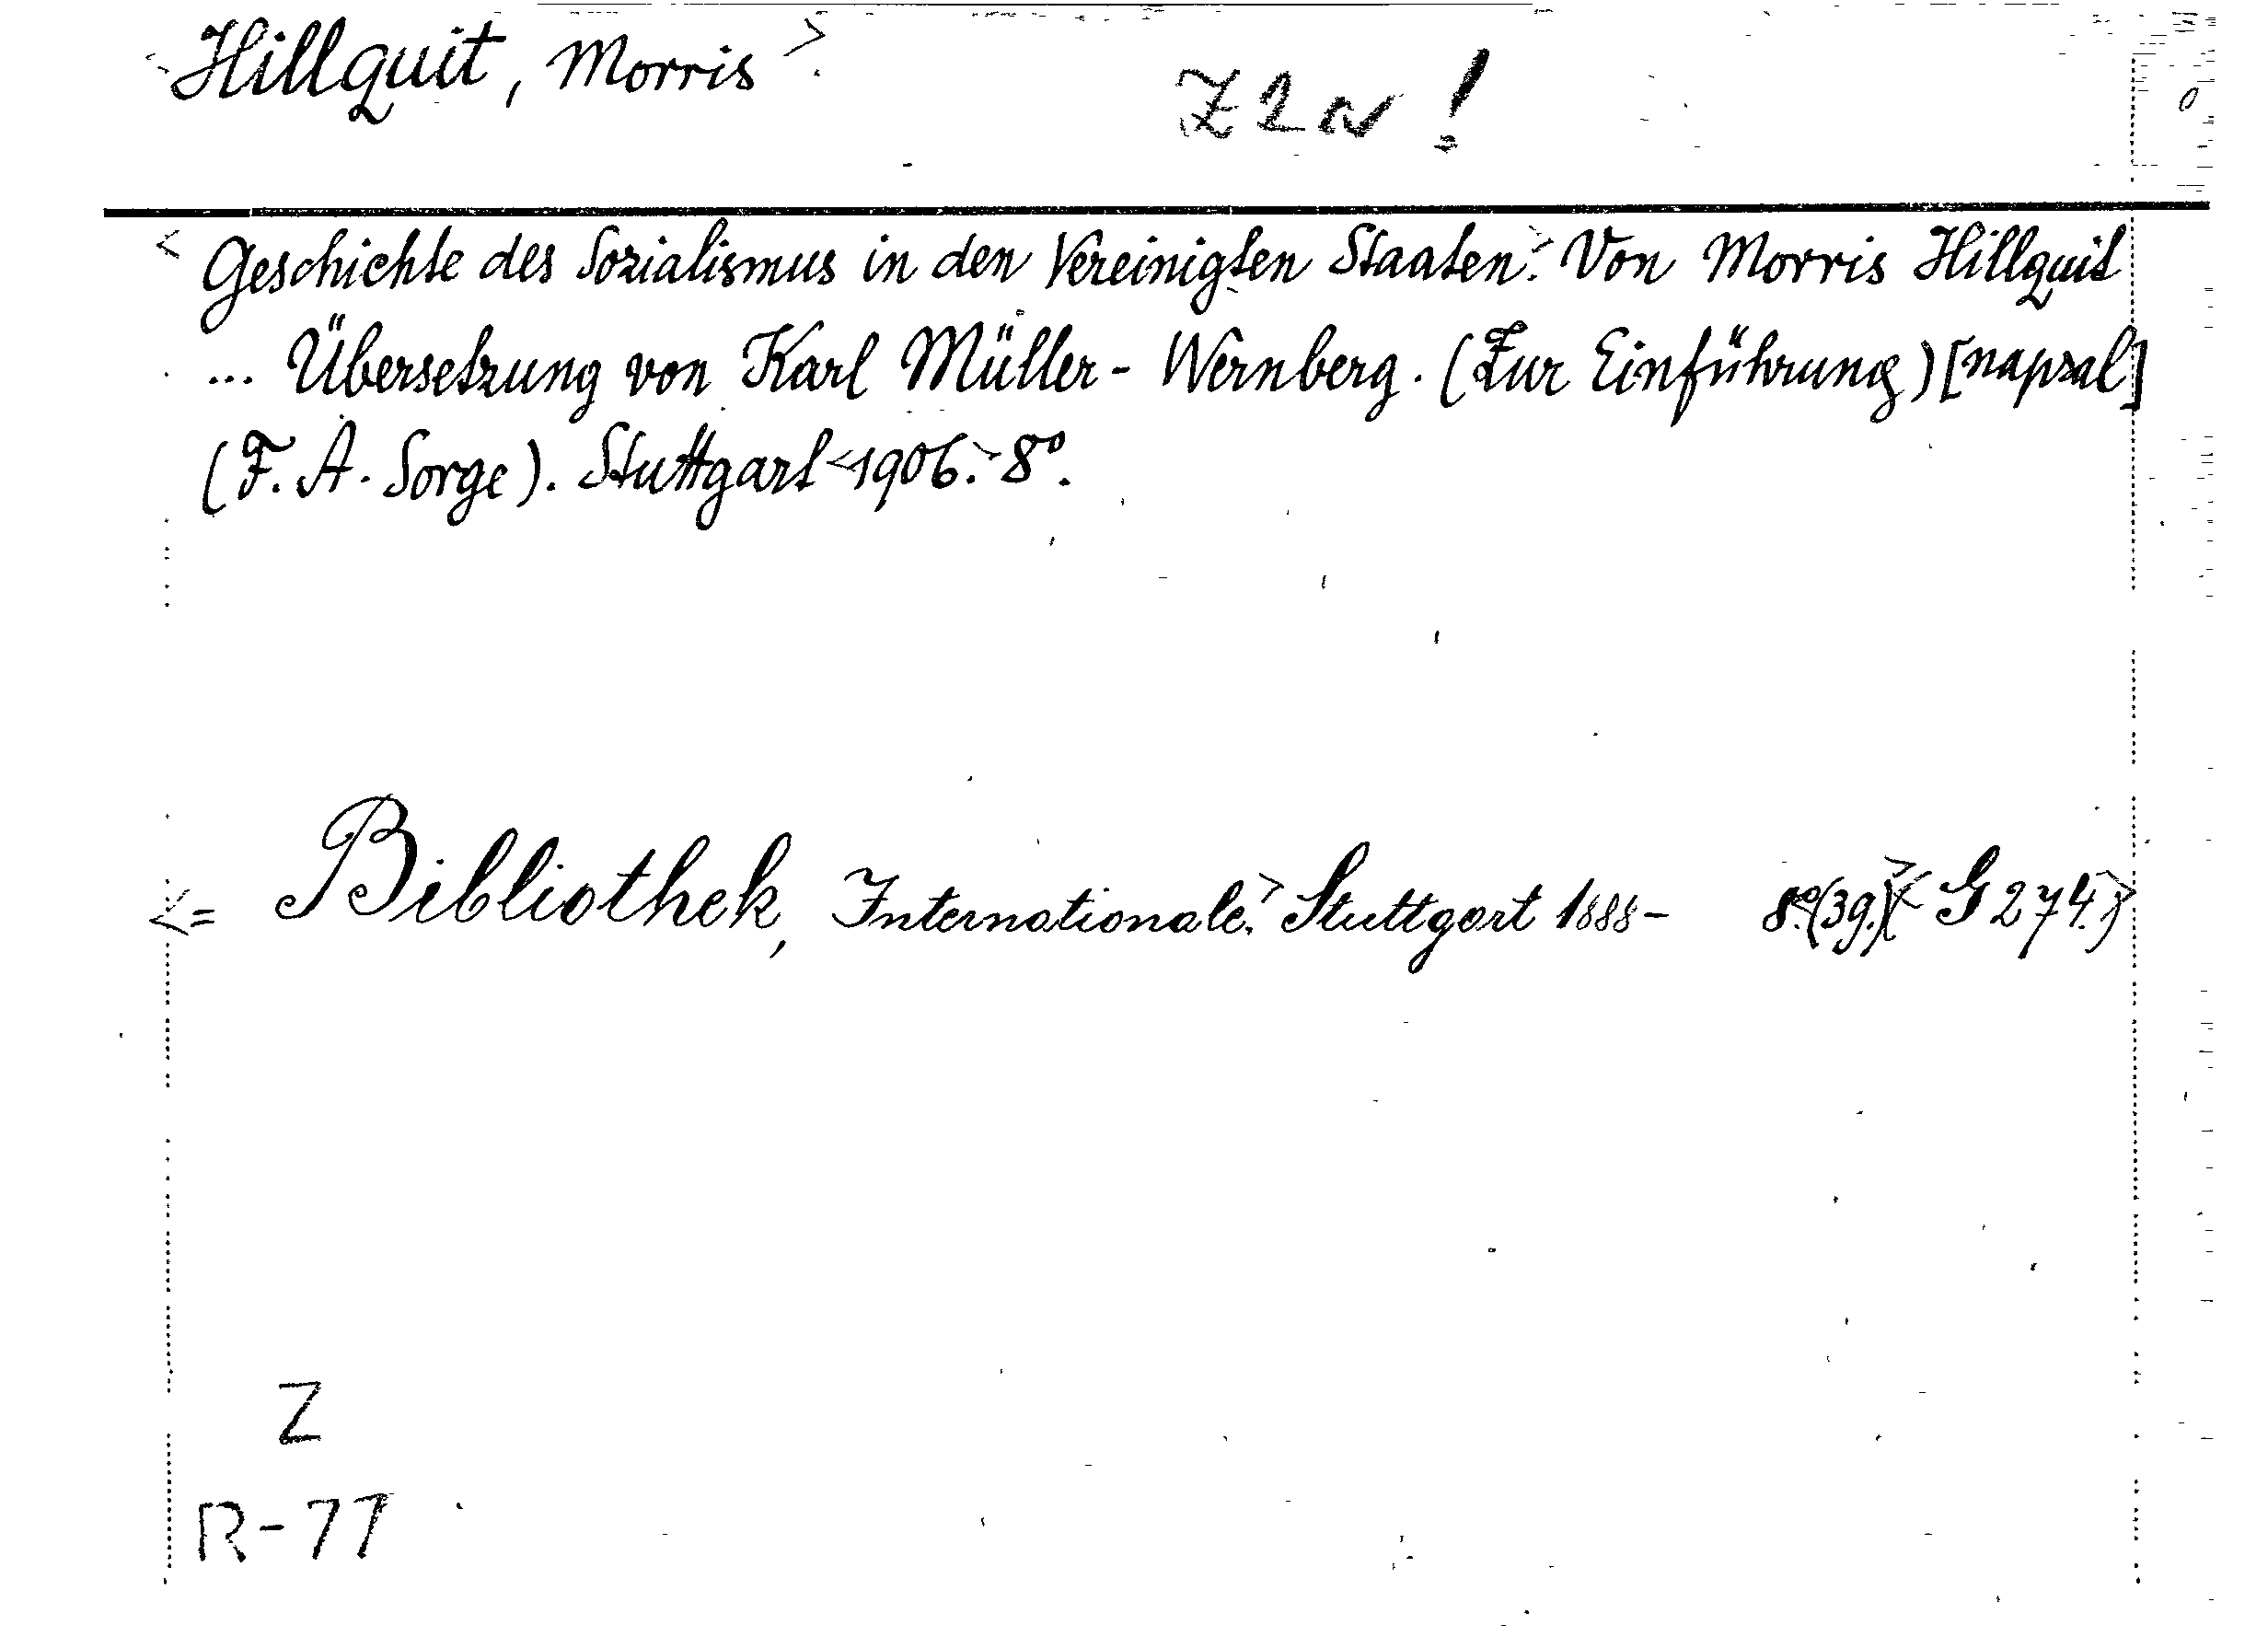 <Hillquit, Morris>.
Z 2 N !
<Geschichte des Sozialismus in den Vereinigten Staaten.> Von Morris Hillquit
... Übersetzung von Karl Müller-Wernberg. (Zur Einführung) [napsal]
(F. A. Sorge). Stuttgart <1906.> 8°.
<= Bibliothek, Internationale.> Stuttgart 1888- 8°.(39.)> <G 274.>
Z
R-77